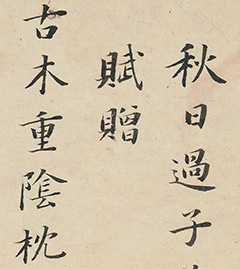 秋日過子
賦贈
古木重陰枕